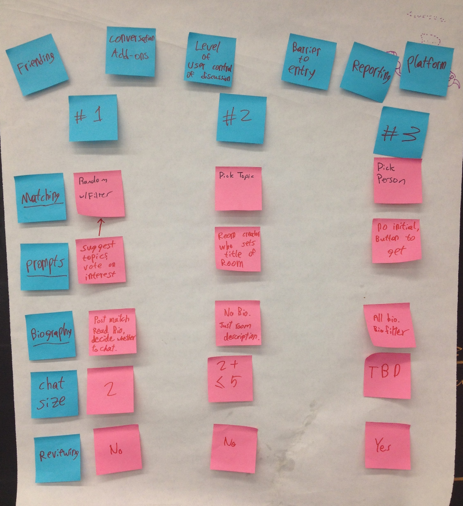 Friending
Conversation
Add-ons
Level
of
User control
of discussion
Barrier
to
entry
Reporting
Platform
#1
#2
#3
Matching
Random
w/Filter
Pick Topic
Pick
Person
Prompts
Suggest
topics
vote on
interest
Room creator
who sets
title of
Room
No initial,
button to
get
Biography
Post match
Read Bio,
decide whether
to chat.
No Bio.
Just room
description.
All bio.
Bio filter
chat
size
2
2+
≤5
TBD
Reviewing
No
No
Yes